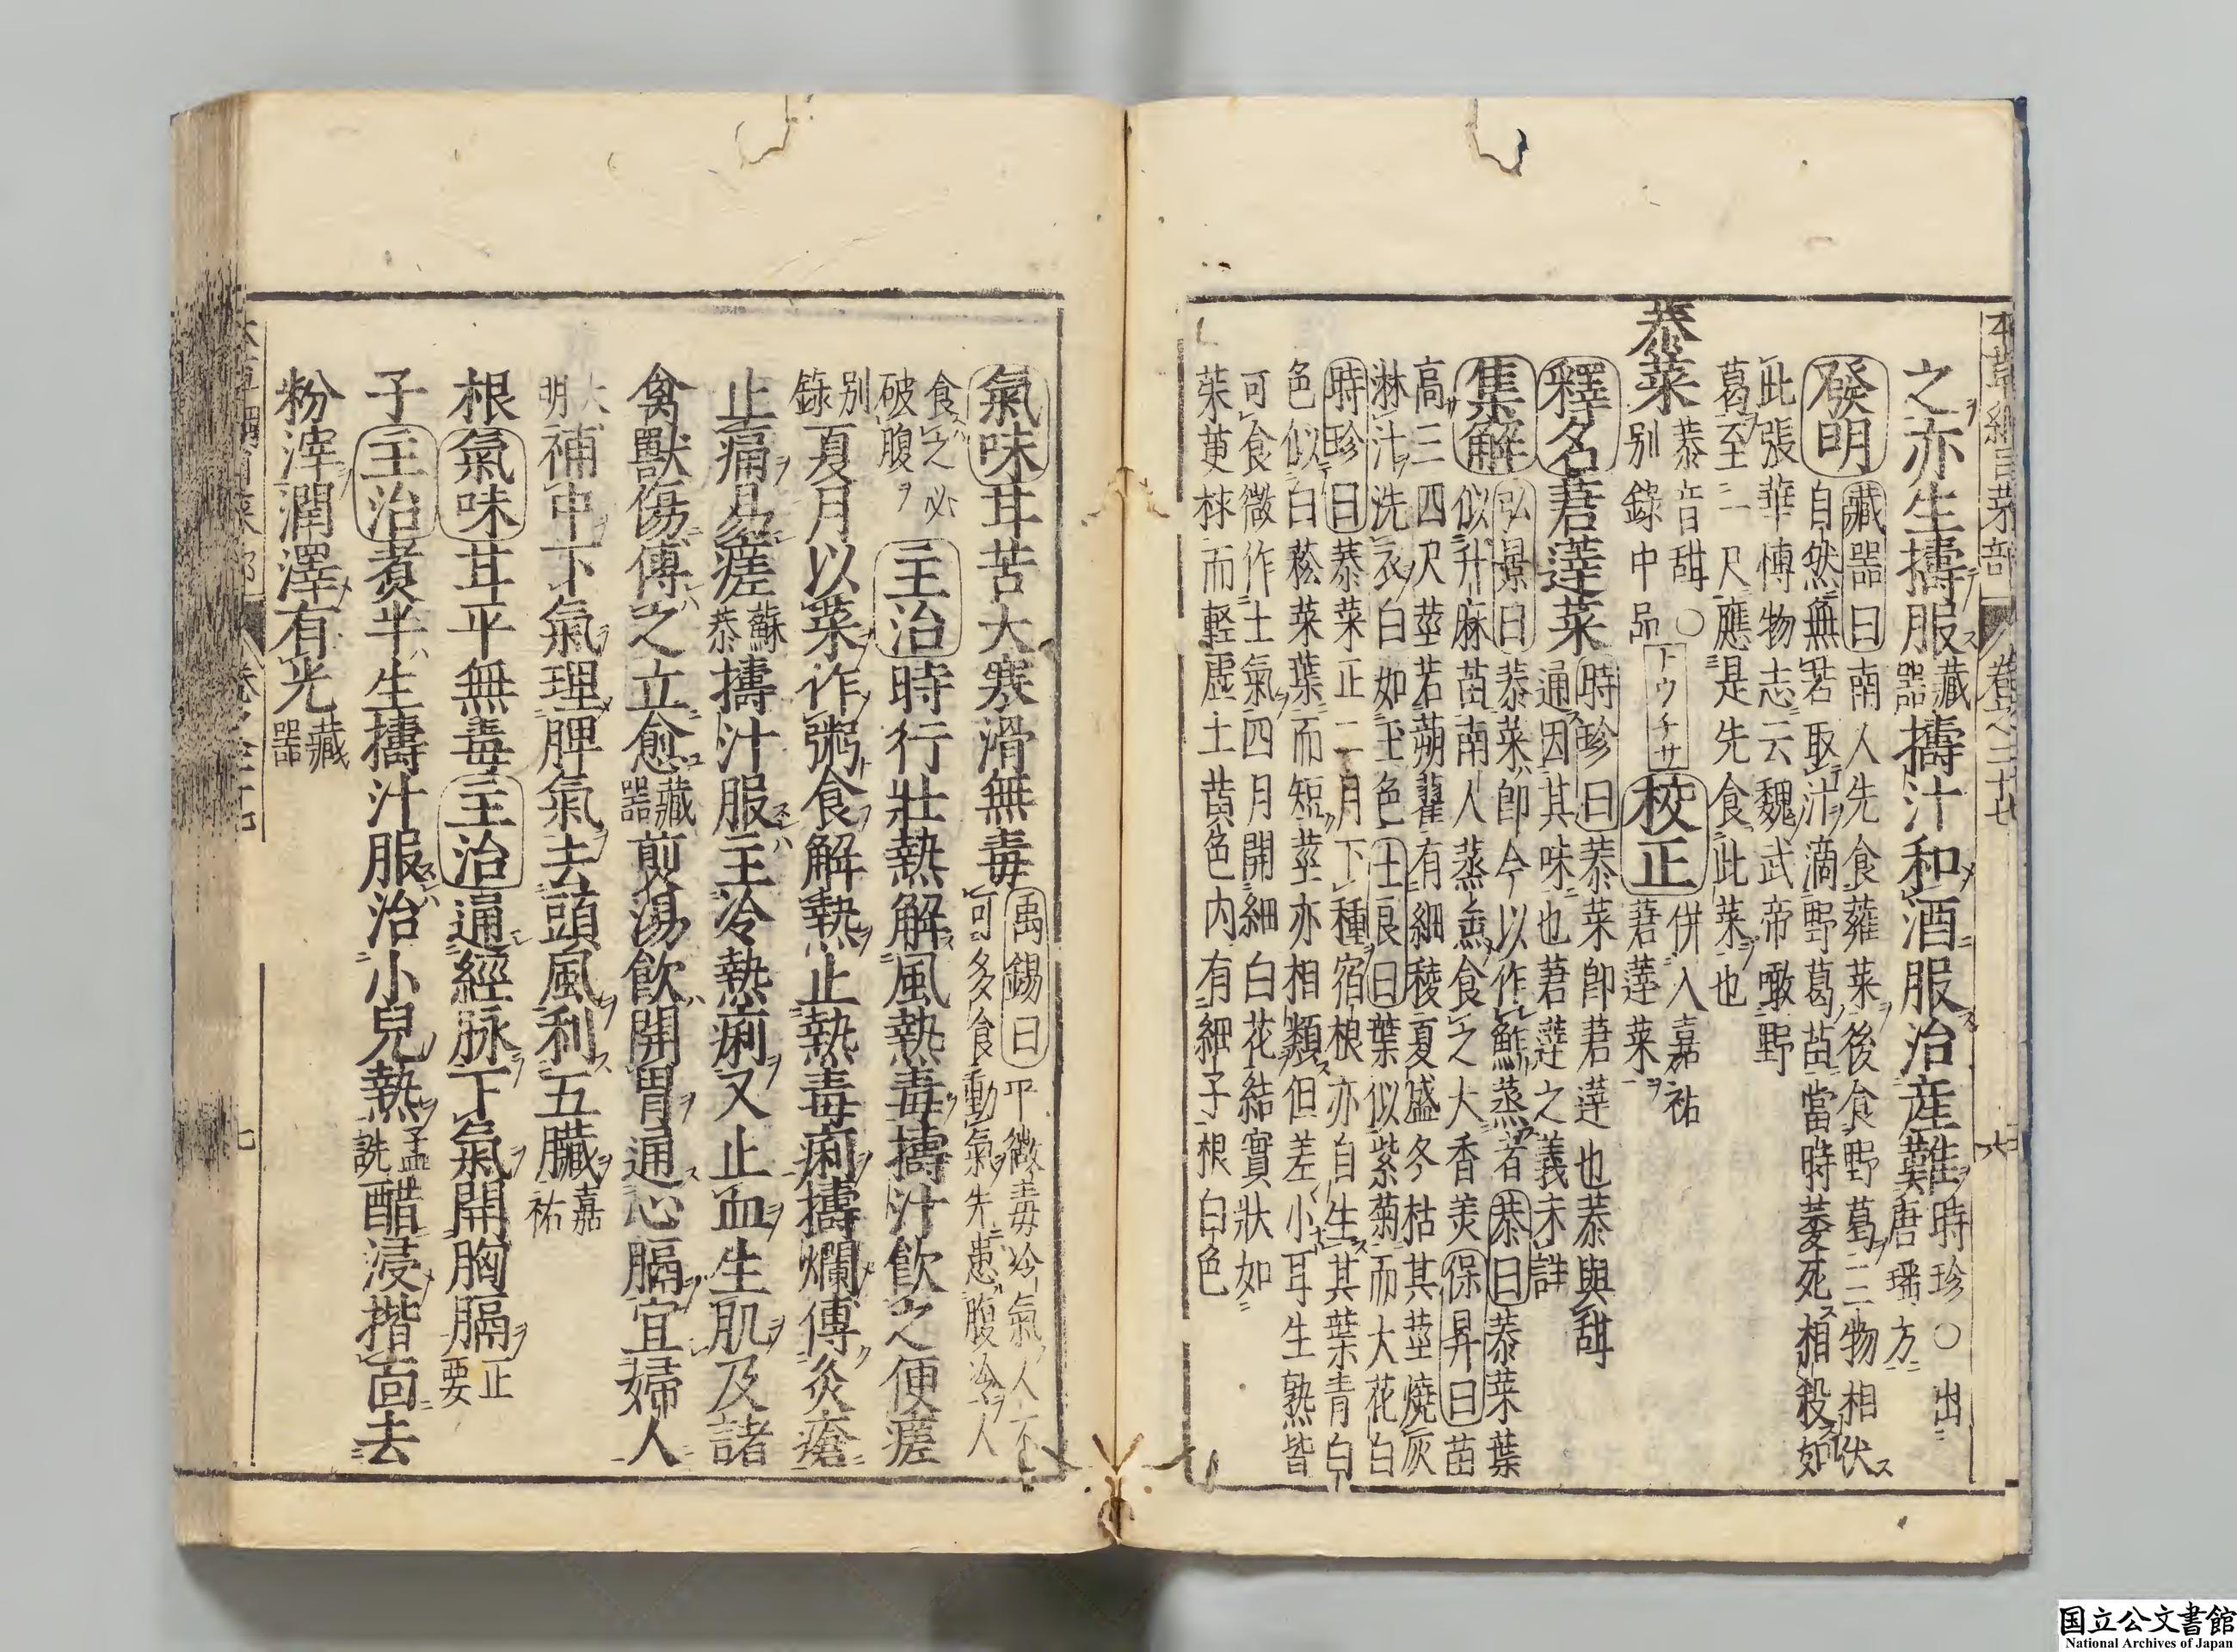 本草綱目菜部 卷之二十七 六
之亦生擣服藏器擣汁和酒服治産難時珍○出唐瑤方
發明藏器曰南人先食蕹菜後食野葛二物相伏
自然無苦取汁滴野葛苗當時萎死相殺如
此張華博物志云魏武帝噉野
葛至一尺應是先食此菜也
菾菜菾音甜○別錄中品トウチサ校正併入嘉祐莙薘菜
釋名莙薘菜時珍曰菾菜卽莙薘也菾與甜
通因其味也莙薘之義未詳
集解弘景曰菾菜卽今以作鮓蒸者恭曰菾菜葉
似升麻苗南人蒸缹食之大香美保昇曰苗
高三四尺莖若蒴藋有細稜夏盛冬枯其莖燒灰
淋汁洗衣白如玉色士良曰葉似紫菊而大花白
時珍曰菾菜正二月下種宿根亦自生其葉青白
色似白菘菜葉而短莖亦相類但差小耳生熟皆
可食微作土氣四月開細白花結實狀如
茱萸梂而輕虛土黃色内有細子根白色
氣味甘苦大寒滑無毒禹錫曰平微毒冷氣人不
可多食動氣先患腹冷人
食之必破腹主治時行壯熱解風熱毒擣汁飲之便瘥
別錄夏月以菜作粥食解熱止熱毒痢擣爛傅灸瘡
止痛易瘥蘇恭擣汁服主冷熱痢又止血生肌及諸
禽獸傷傅之立愈藏器煎湯飲開胃通心膈宜婦人
大明補中下氣理脾氣去頭風利五臟嘉祐
根氣味甘平無毒主治通經脉下氣開胸膈正要
子主治煮半生擣汁服治小兒熱孟詵醋浸揩面去
粉滓潤澤有光藏器
七
国立公文書館
National Archives of Japan